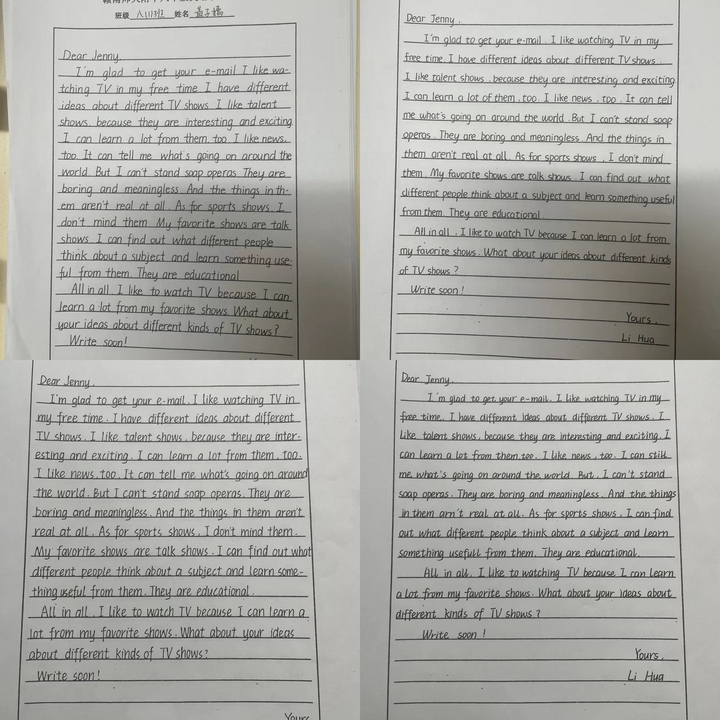 班级 八(11)班 姓名
Dear Jenny,
I'm glad to get your e-mail I like wa-
tching TV in my free time I have different
ideas about different TV shows I like talent
shows, because they are interesting and exciting
I can learn a lot from them, too. I like news,
too. It can tell me what's going on around the
world. But I can't stand soap operas They are
boring and meaningless. And the things in th-
em aren't real at all. As for sports shows, I
don't mind them My favorite shows are talk
shows I can find out what different people
think about a subject and learn something use-
ful from them. They are educational
All in all, I like to watch TV because I can
learn a lot from my favorite shows What about
your ideas about different kinds of TV shows?
Write soon!
Dear Jenny,
I'm glad to get your e-mail. I like watching TV in my
free time. I have different ideas about different TV shows.
I like talent shows, because they are interesting and exciting
I can learn a lot of them, too. I like news, too. It can tell
me what's going on around the world. But I can't stand soap
operas. They are boring and meaningless. And the things in
them aren't real at all. As for sports shows, I don't mind
them. My favorite shows are talk shows. I can find out what
different people think about a subject and learn something useful
from them. They are educational
All in all, I like to watch TV because I can learn a lot from
my favorite shows. What about your ideas about different kinds
of TV shows?
Write soon!
Yours,
Li Hua
Dear Jenny,
I'm glad to get your e-mail. I like watching TV in
my free time. I have different ideas about different
TV shows. I like talent shows, because they are inter-
esting and exciting. I can learn a lot from them, too.
I like news, too. It can tell me what's going on around
the world. But I can't stand soap operas. They are
boring and meaningless. And the things in them aren't
real at all. As for sports shows, I don't mind them.
My favorite shows are talk shows. I can find out what
different people think about a subject and learn some-
thing useful from them. They are educational.
All in all, I like to watch TV because I can learn a
lot from my favorite shows. What about your ideas
about different kinds of TV shows?
Write soon!
Yours
Dear Jenny,
I'm glad to get your e-mail. I like watching TV in my
free time. I have different ideas about different TV shows. I
like talent shows, because they are interesting and exciting. I
can learn a lot from them, too. I like news, too. I can still
me what's going on around the world. But, I can't stand
soap operas. They are boring and meaningless. And the things
in them arn't real at all. As for sports shows, I can find
out what different people think about a subject and learn
something usefull from them. They are educational.
All in all, I like to watching TV because I can learn
a lot from my favorite shows. What about your ideas about
different kinds of TV shows?
Write soon!
Yours,
Li Hua